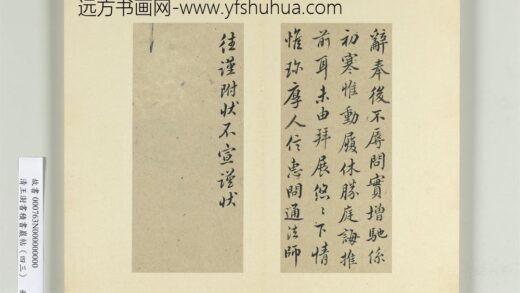 远方书画网-www.yfshuhua.com
辭奉後不辱問實增馳係
初寒惟動履休勝庭誨推
前耳未由拜展悠〻下情
惟珎厚人伫惠問通法師
往谨附状不宣谨状
故書000763N000000000
清王澍書積書巖帖(四三)